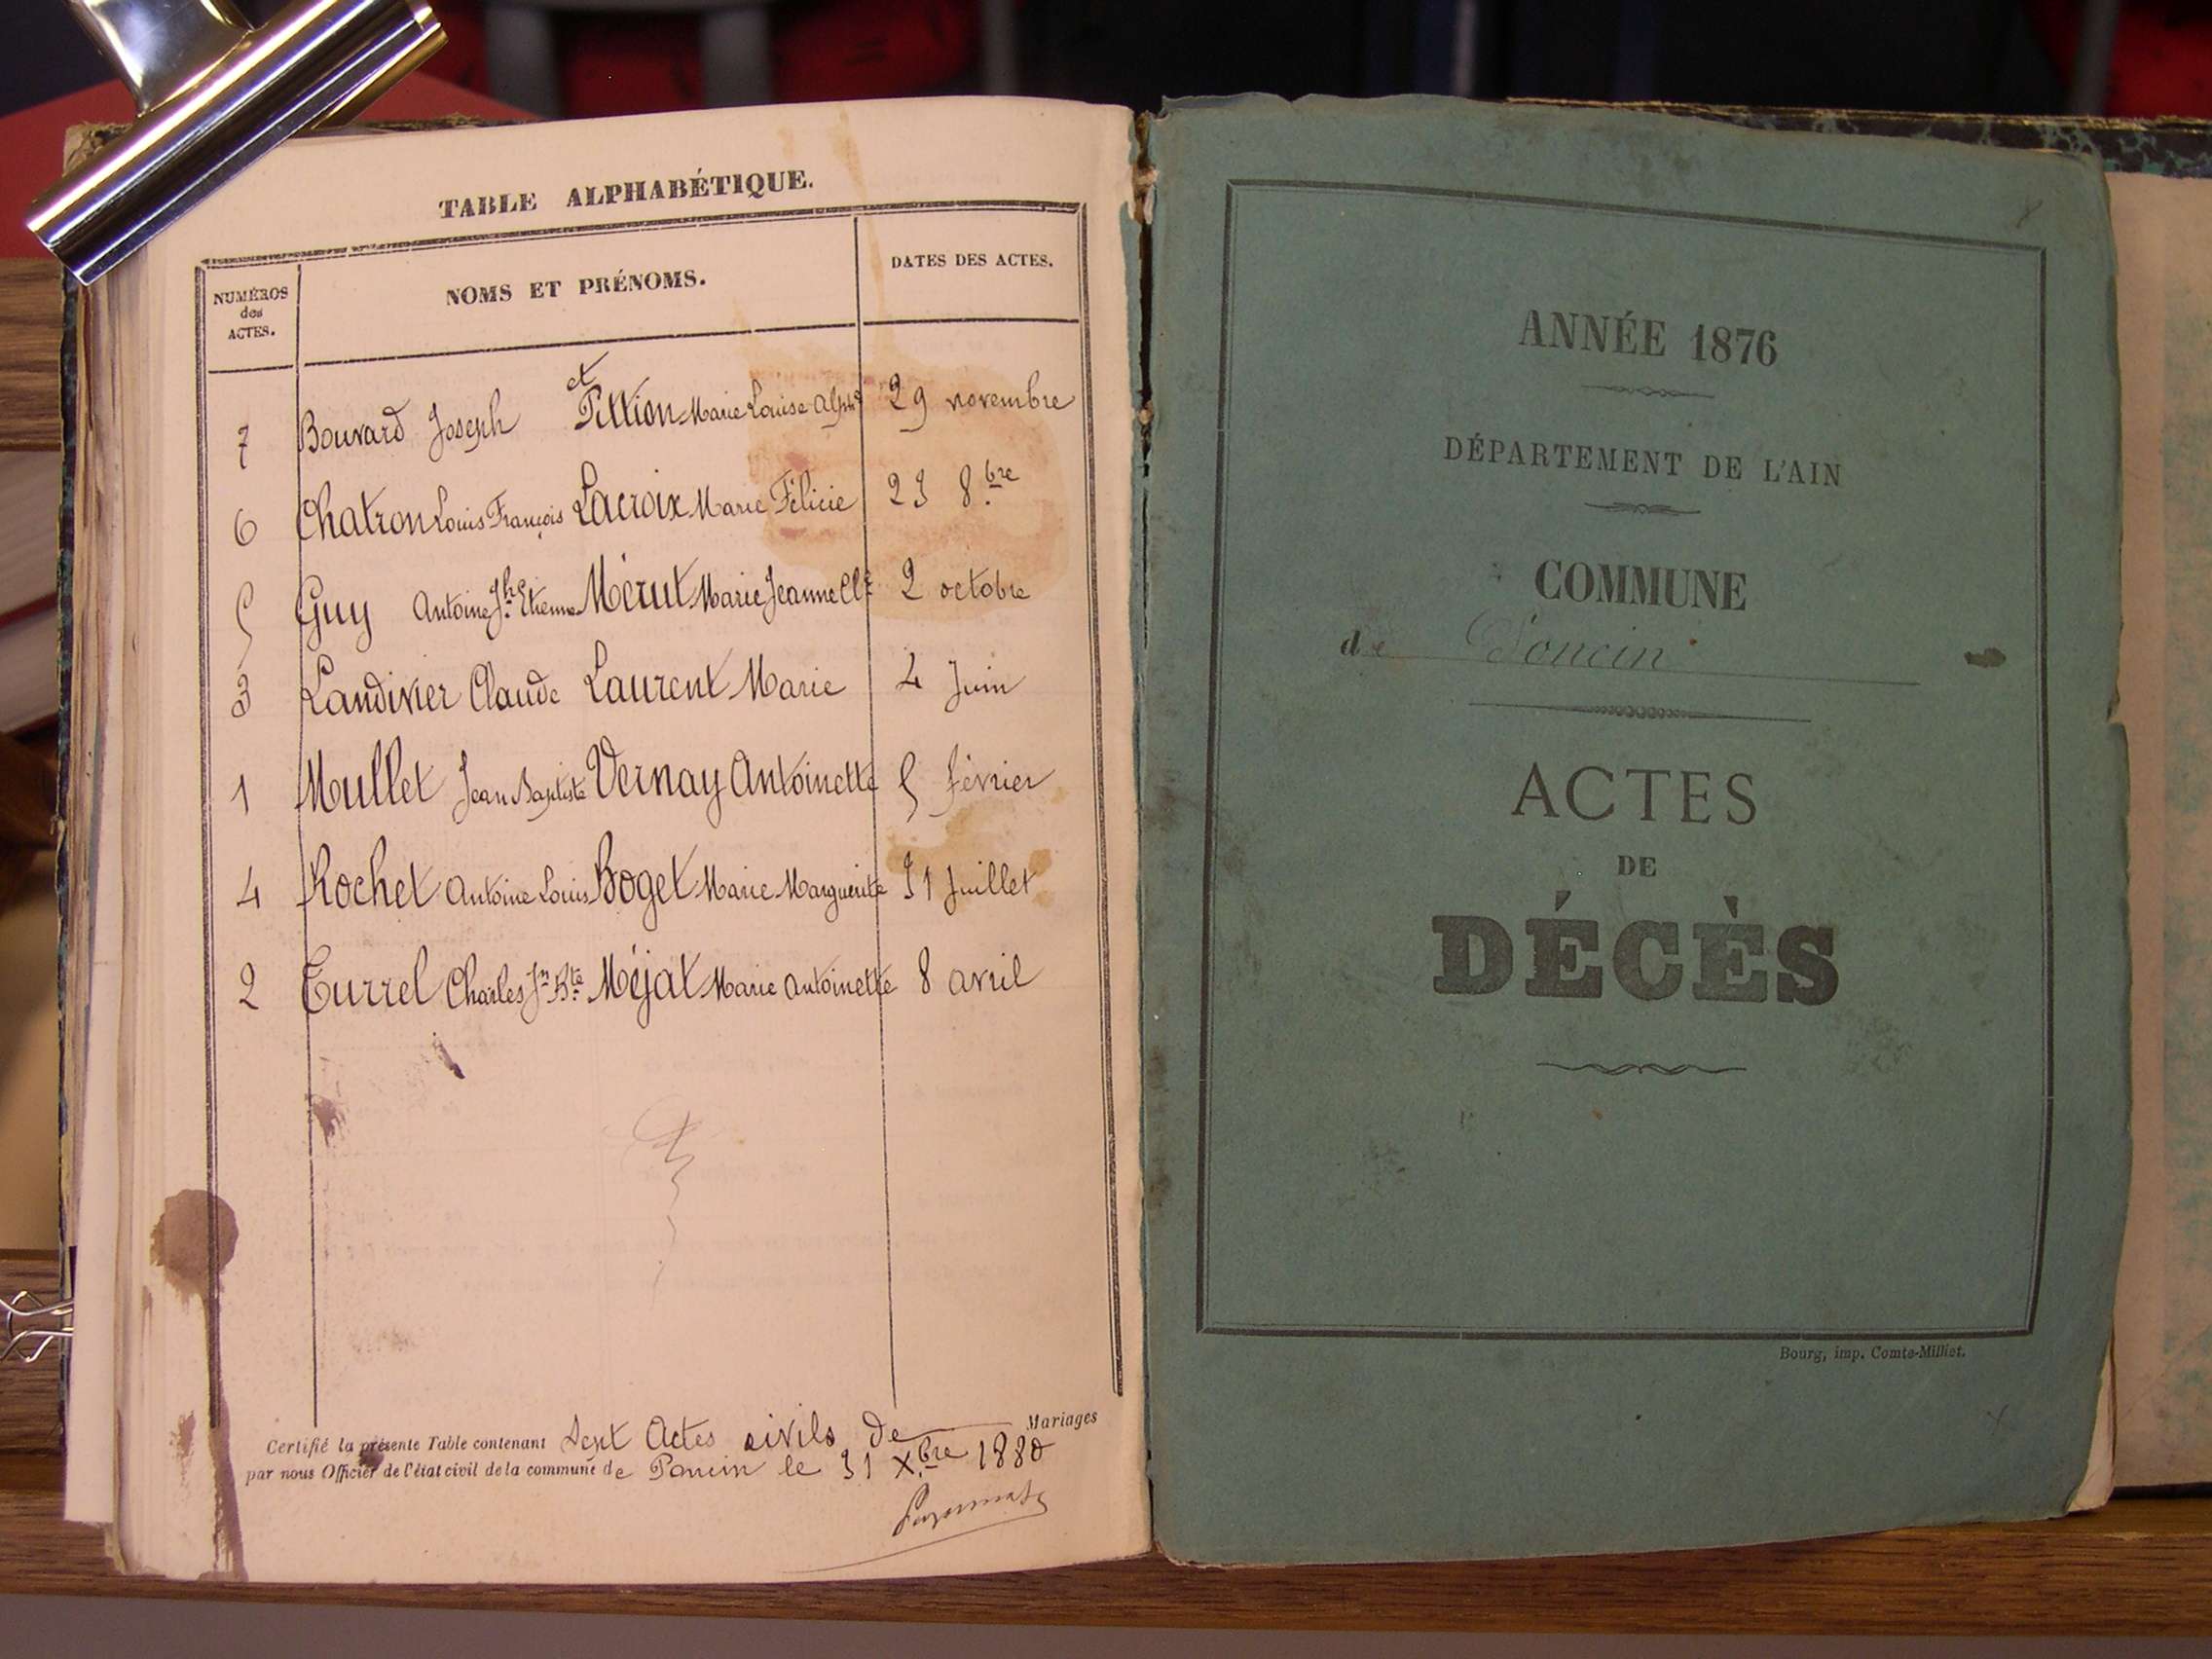 TABLE ALPHABÉTIQUE.
NUMÉROS
des
ACTES.
NOMS ET PRÉNOMS.
DATES DES ACTES.
et
7 Bouvard Joseph Pittion Marie Louise Alph 29 novembre
6 Chatron Louis François Lacroix Marie Félicie 23 8.bre
5 Guy Antoine Jh. Etienne Mérut Marie Jeanne 2 octobre
3 Landivier Claude Laurent Marie 4 Juin
1 Mullet Jean Baptiste Vernay Antoinette 5 février
4 Rochet Antoine Louis Boget Marie Marguerite 31 Juillet
2 Turrel Charles Jn Bte Méjat Marie Antoinette 8 avril
Certifié la présente Table contenant Sept Actes civils de Mariages
par nous Officier de l'état civil de la commune de Poncin le 31 Xbre 1880
ANNÉE 1876
DÉPARTEMENT DE L'AIN
COMMUNE
de Poncin
ACTES
DE
DÉCÈS
Bourg, imp. Comte-Milliet.